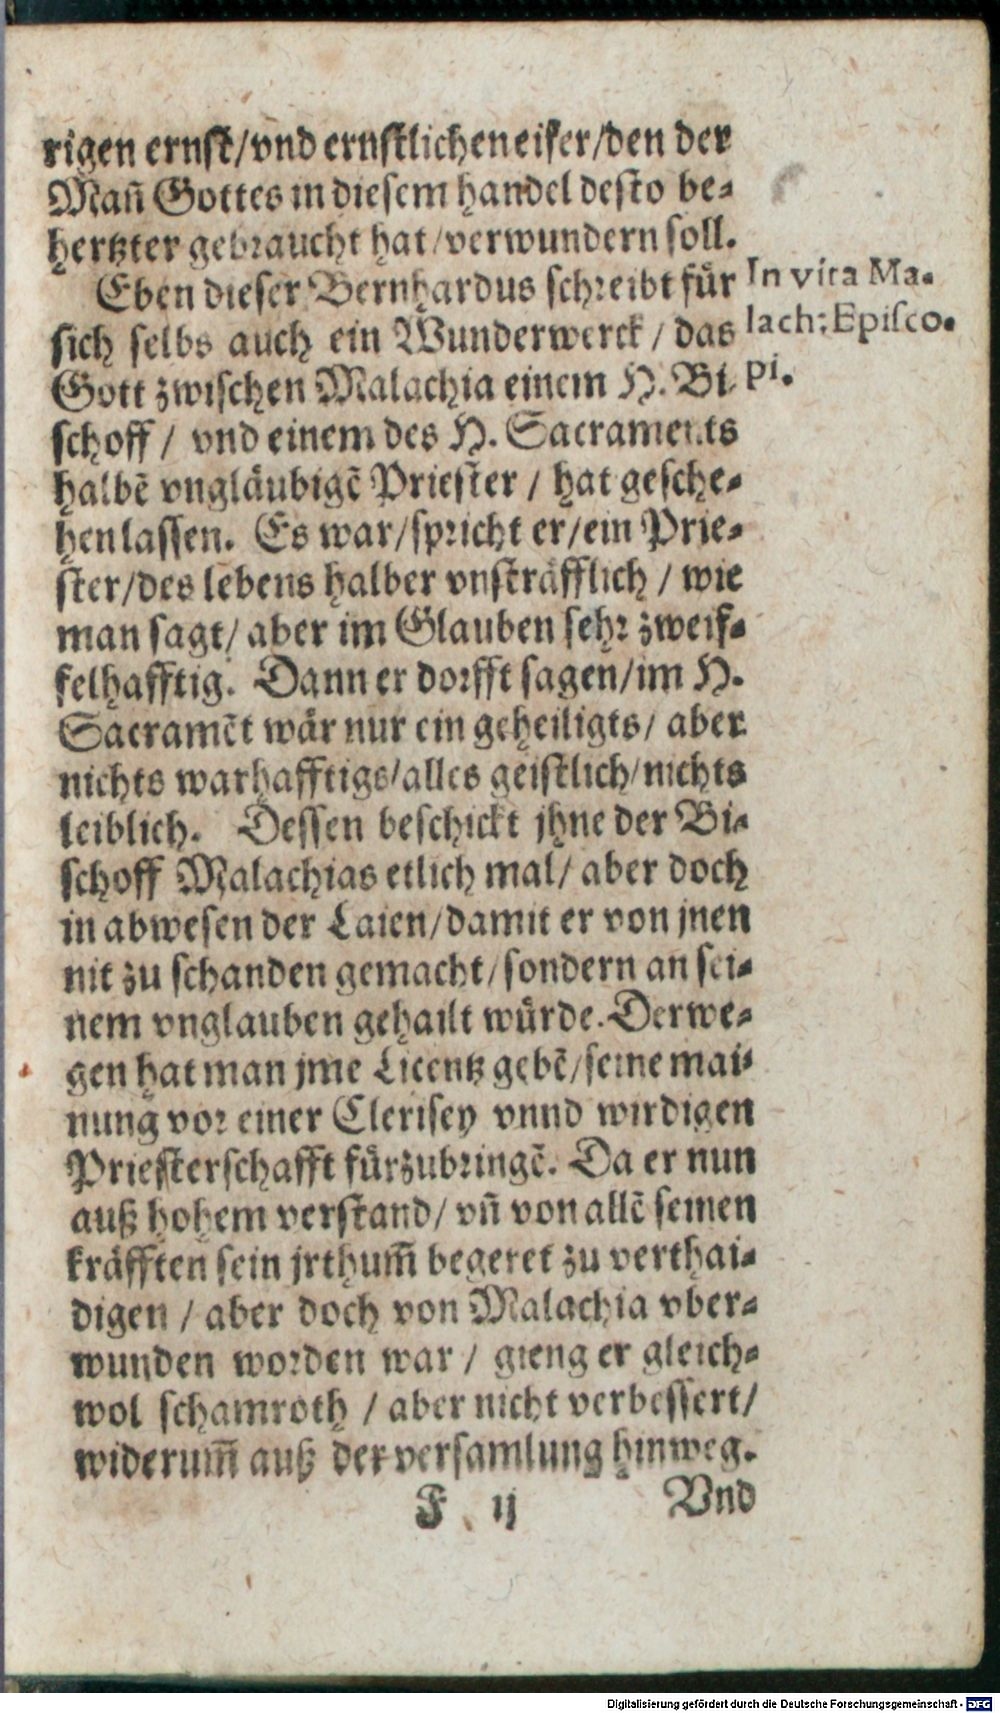 rigen ernst/vnd ernstlichen eifer/den der
Mañ Gottes in diesem handel desto be-
hertzter gebraucht hat/verwundern soll.
Eben dieser Bernhardus schreibt für
In vita Ma-
sich selbs auch ein Wunderwerck / das
lach: Episco-
Gott zwischen Malachia einem H. Bi-
pi.
schoff / vnd einem des H. Sacraments
halbẽ vngläubigẽ Priester / hat gesche-
hen lassen. Es war/spricht er/ein Prie-
ster/des lebens halber vnsträfflich / wie
man sagt/ aber im Glauben sehr zweif-
felhafftig. Dann er dorfft sagen/im H.
Sacramẽt wär nur ein geheiligts/ aber
nichts warhafftigs/alles geistlich/nichts
leiblich. Dessen beschickt jhne der Bi-
schoff Malachias etlich mal/ aber doch
in abwesen der Laien/damit er von jnen
nit zu schanden gemacht/sondern an sei-
nem vnglauben gehailt würde. Derwe-
gen hat man jme Licentz gebẽ/seine mai-
nung vor einer Clerisey vnnd wirdigen
Priesterschafft fürzubringẽ. Da er nun
auß hohem verstand/ vñ von allẽ seinen
kräfften sein jrthum̃ begeret zu verthai-
digen / aber doch von Malachia vber-
wunden worden war / gieng er gleich-
wol schamroth / aber nicht verbessert/
widerum̃ auß der versamlung hinweg.
F ij
Vnd
Digitalisierung gefördert durch die Deutsche Forschungsgemeinschaft - DFG